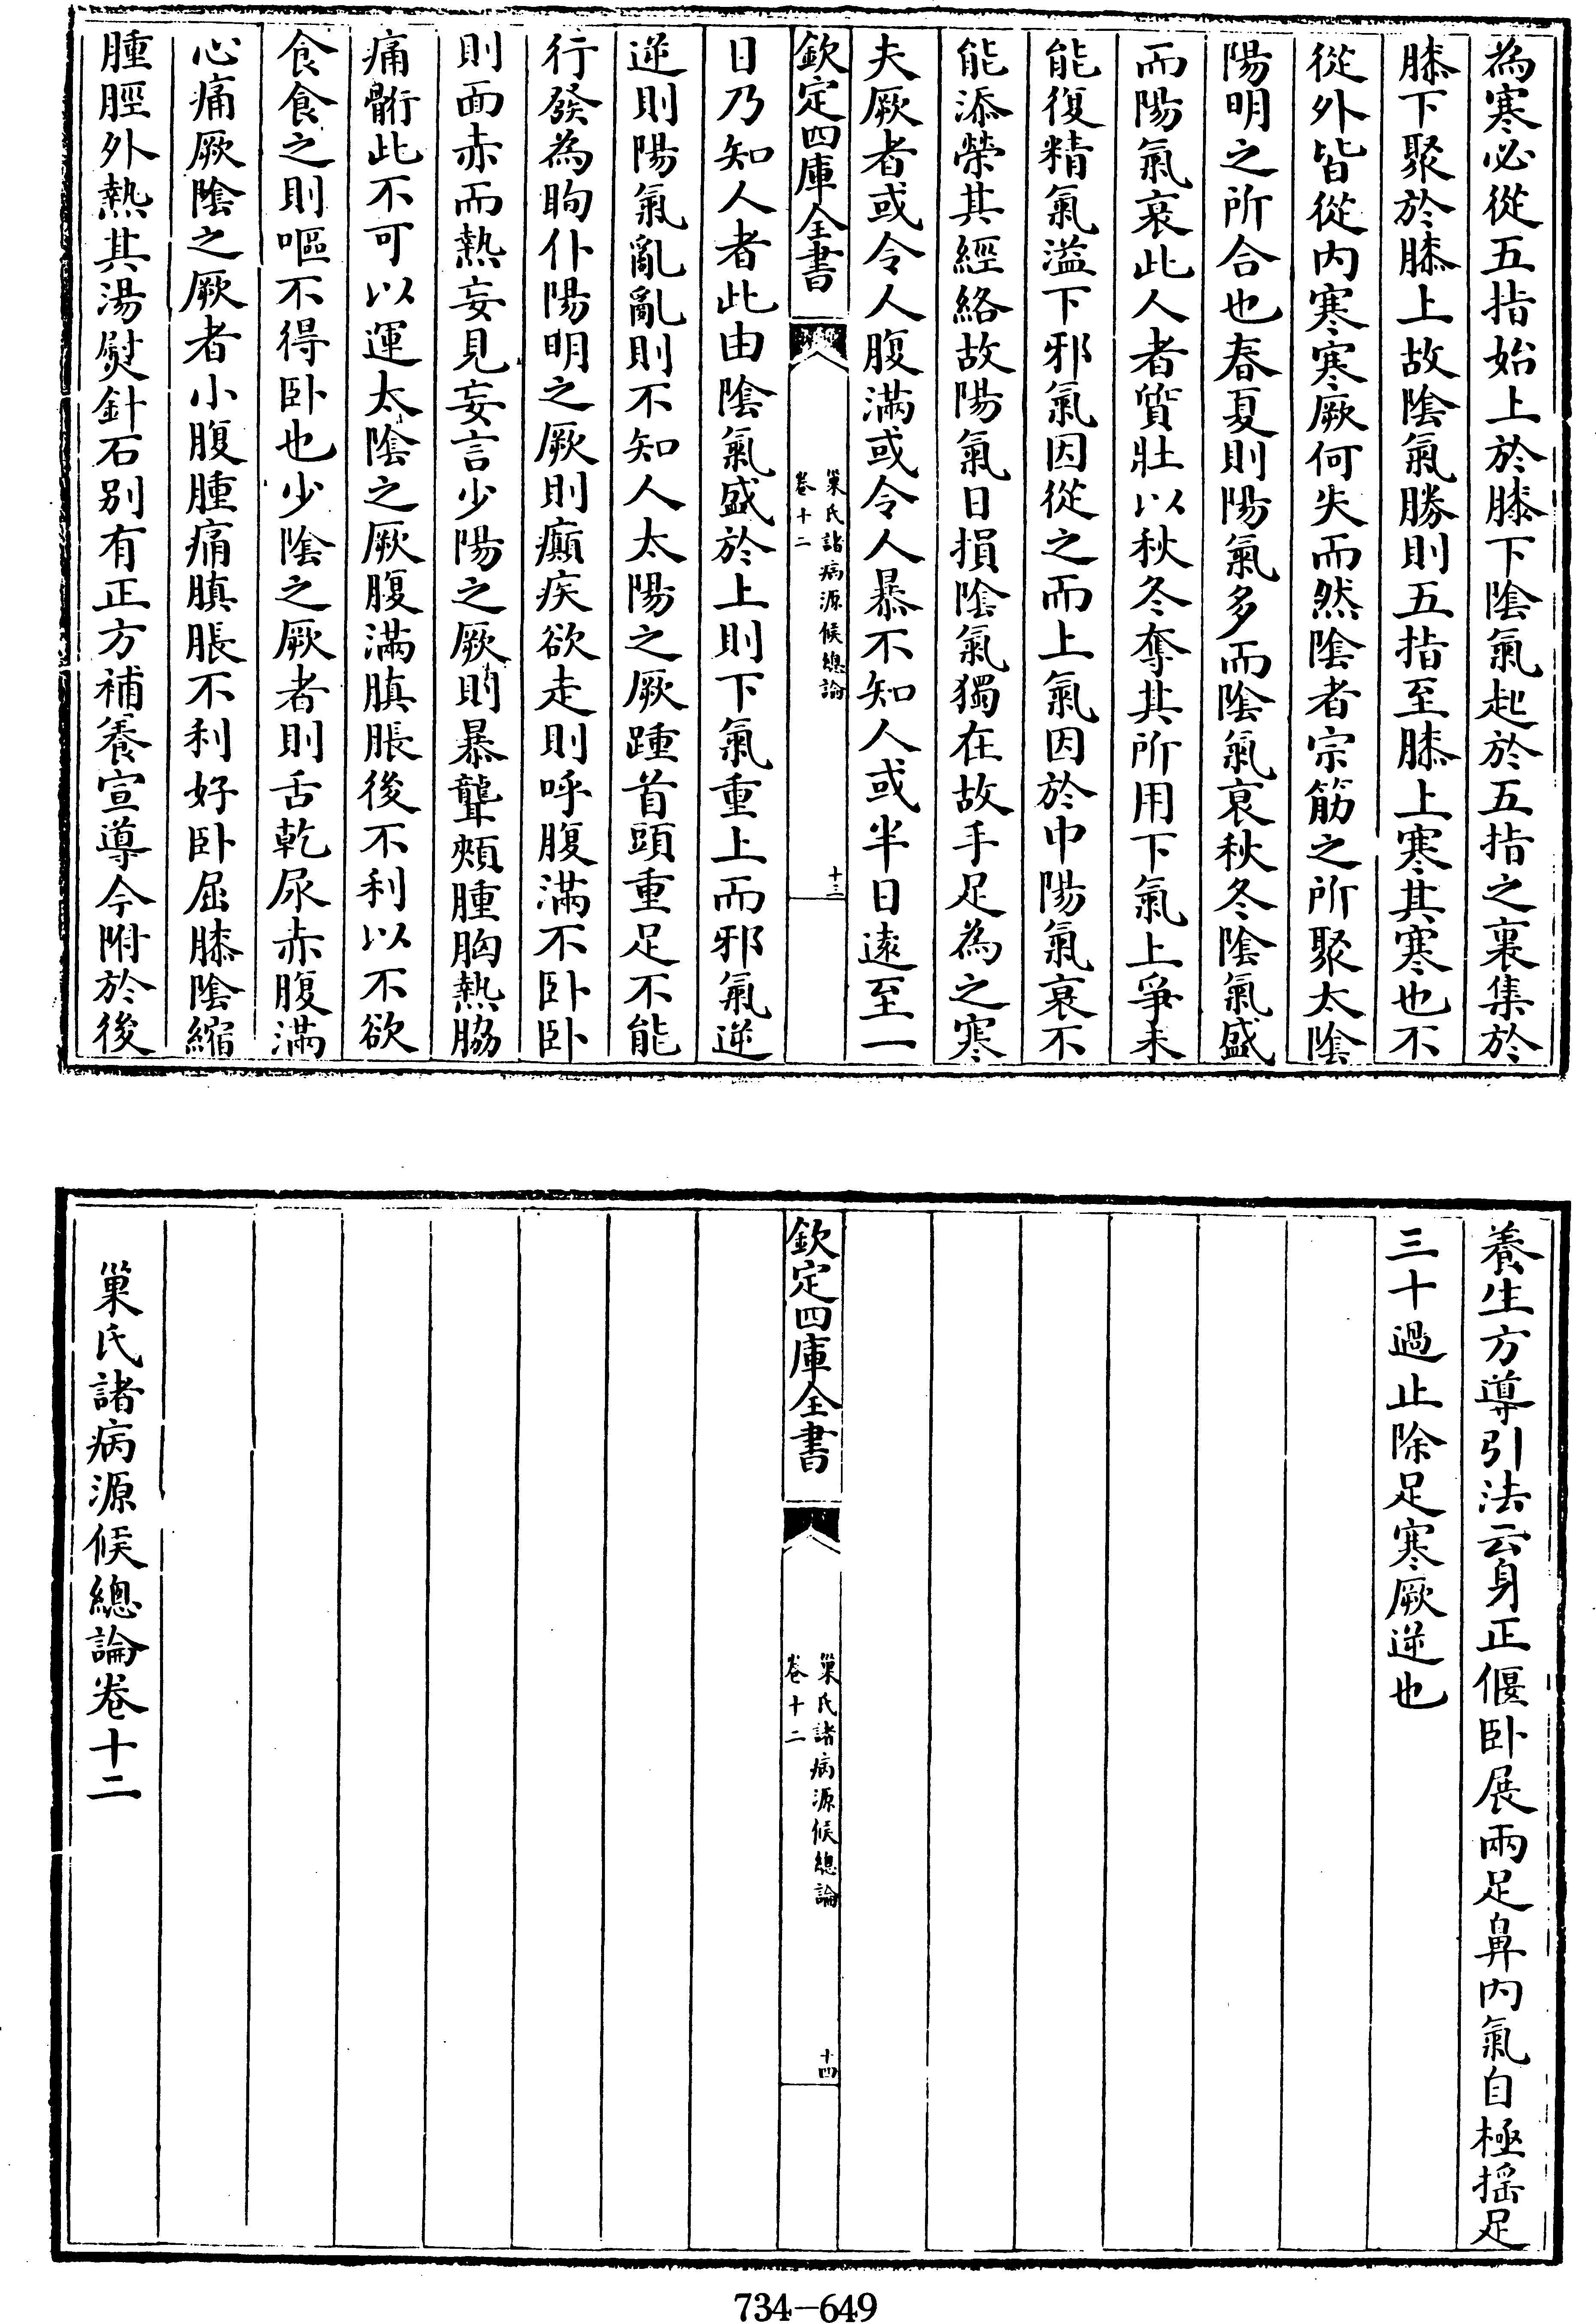 為寒必從五指始上於膝下陰氣起於五指之裏集於
膝下聚於膝上故陰氣勝則五指至膝上寒其寒也不
從外皆從内寒寒厥何失而然陰者宗筋之所聚太陰
陽明之所合也春夏則陽氣多而陰氣衰秋冬陰氣盛
而陽氣衰此人者質壯以秋冬奪其所用下氣上爭未
能復精氣溢下邪氣因從之而上氣因於中陽氣衰不
能添榮其經絡故陽氣日損陰氣獨在故手足為之寒
夫厥者或令人腹滿或令人暴不知人或半日遠至一
欽定四庫全書
巢氏諸病源候總論
卷十二
十三
日乃知人者此由陰氣盛於上則下氣重上而邪氣逆
逆則陽氣亂亂則不知人太陽之厥踵首頭重足不能
行發為眴仆陽明之厥則癲疾欲走則呼腹滿不卧卧
則面赤而熱妄見妄言少陽之厥則暴聾頰腫胸熱脇
痛䯒此不可以運太陰之厥腹滿䐜脹後不利以不欲
食食之則嘔不得卧也少陰之厥者則舌乾尿赤腹滿
心痛厥陰之厥者小腹腫痛䐜脹不利好卧屈膝陰縮
腫脛外熱其湯熨針石别有正方補養宣導今附於後
養生方導引法云身正偃卧展兩足鼻内氣自極摇足
三十過止除足寒厥逆也
欽定四庫全書
巢氏諸病源候總論
卷十二
十四
巢氏諸病源候總論卷十二
734-649